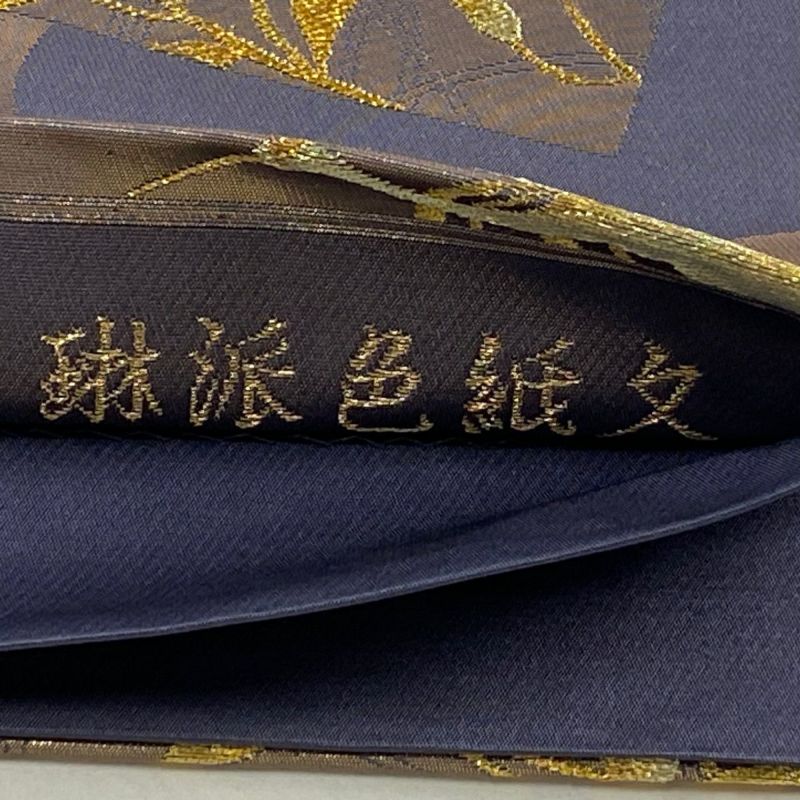 琳派色紙文